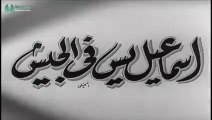 اسماعيل يس في الجيش